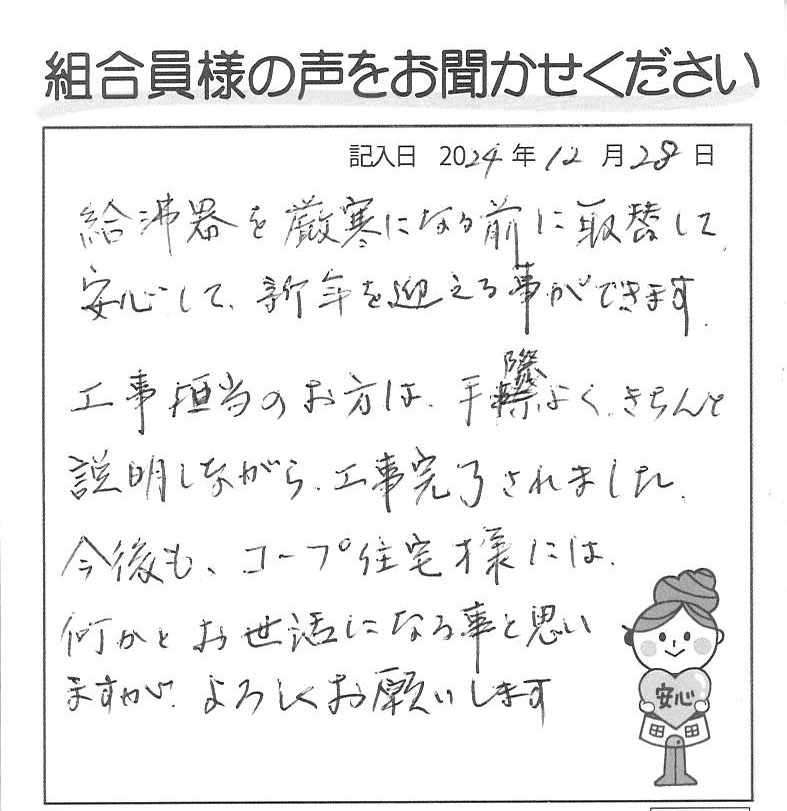 組合員様の声をお聞かせください
記入日 2024年12月28日
給沸器を厳寒になる前に取替して、
安心して、新年を迎える事ができます。
工事担当のお方は、手際よく、きちんと
説明しながら、工事完了されました。
今後も、コープ住宅様には、
何かとお世話になる事と思い
ますが、よろしくお願いします
安心